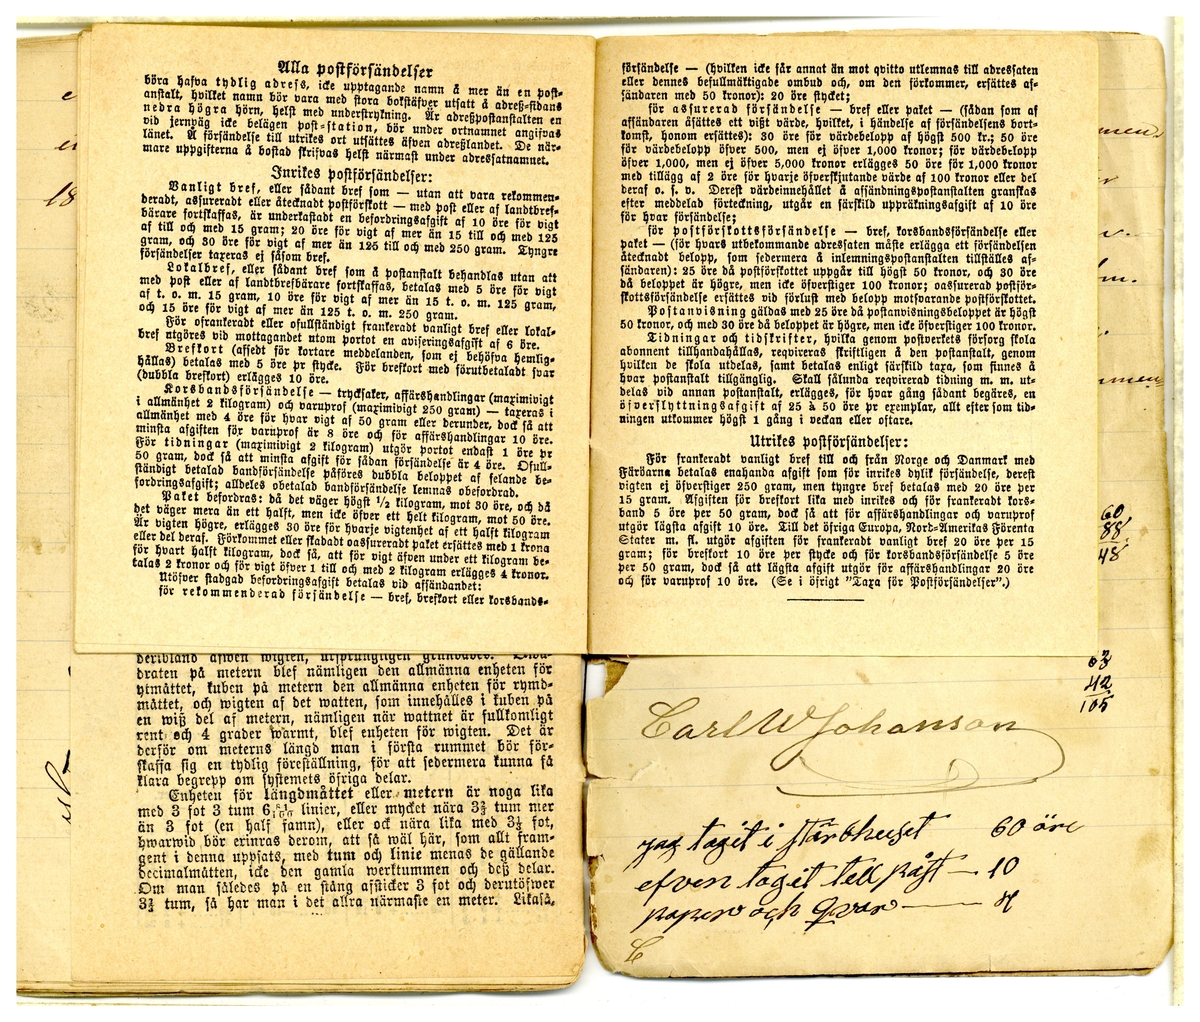 Alla postförsändelser
böra hafva tydlig adress, icke upptagande namn å mer än en post-
anstalt, hvilket namn bör vara med stora bokstäfver utsatt å adreß-sidans
nedra högra hörn, helst med understrykning. Är adreßpostanstalten en
vid jernväg icke belägen post-station, bör under ortnamnet angifvas
länet. Å försändelse till utrikes ort utsättes äfven adreßlandet. De när-
mare uppgifterna å bostad skrifvas helst närmast under adressatnamnet.
Inrikes postförsändelser:
Vanligt bref, eller sådant bref som — utan att vara rekommen-
deradt, assureradt eller åtecknadt postförskott — med post eller af landtbref-
bärare fortskaffas, är underkastadt en befordringsafgift af 10 öre för vigt
af till och med 15 gram; 20 öre för vigt af mer än 15 till och med 125
gram, och 30 öre för vigt af mer än 125 till och med 250 gram. Tyngre
försändelser taxeras ej såsom bref.
Lokalbref, eller sådant bref som å postanstalt behandlas utan att
med post eller af landtbrefbärare fortskaffas, betalas med 5 öre för vigt
af t. o. m. 15 gram, 10 öre för vigt af mer än 15 t. o. m. 125 gram,
och 15 öre för vigt af mer än 125 t. o. m. 250 gram.
För ofrankeradt eller ofullständigt frankeradt vanligt bref eller lokal-
bref utgöres vid mottagandet utom portot en aviseringsafgift af 6 öre.
Brefkort (afsedt för kortare meddelanden, som ej behöfva hemlig-
hållas) betalas med 5 öre pr stycke. För brefkort med förutbetaladt svar
(dubbla brefkort) erlägges 10 öre.
Korsbandsförsändelse — trycksaker, affärshandlingar (maximivigt
i allmänhet 2 kilogram) och varuprof (maximivigt 250 gram) — taxeras i
allmänhet med 4 öre för hvar vigt af 50 gram eller derunder, dock så att
minsta afgiften för varuprof är 8 öre och för affärshandlingar 10 öre.
För tidningar (maximivigt 2 kilogram) utgör portot endast 1 öre pr
50 gram, dock så att minsta afgift för sådan försändelse är 4 öre. Ofull-
ständigt betalad bandförsändelse påföres dubbla beloppet af felande be-
fordringsafgift; alldeles obetalad bandförsändelse lemnas obefordrad.
Paket befordras: då det väger högst 1/2 kilogram, mot 30 öre, och då
det väger mera än ett halft, men icke öfver ett helt kilogram, mot 50 öre.
Är vigten högre, erlägges 30 öre för hvarje vigtenhet af ett halft kilogram
eller del deraf. Förkommet eller skadadt oassureradt paket ersättes med 1 krona
för hvart halft kilogram, dock så, att för vigt äfven under ett kilogram be-
talas 2 kronor och för vigt öfver 1 till och med 2 kilogram erlägges 4 kronor.
Utöfver stadgad befordringsafgift betalas vid afsändandet:
för rekommenderad försändelse — bref, brefkort eller korsbands-
försändelse — (hvilken icke får annat än mot qvitto utlemnas till adressaten
eller dennes befullmäktigade ombud och, om den förkommer, ersättes af-
sändaren med 50 kronor): 20 öre stycket;
för assurerad försändelse — bref eller paket — (sådan som af
afsändaren åsättes ett vißt värde, hvilket, i händelse af försändelsens bort-
komst, honom ersättes): 30 öre för värdebelopp af högst 500 kr.; 50 öre
för värdebelopp öfver 500, men ej öfver 1,000 kronor; för värdebelopp
öfver 1,000, men ej öfver 5,000 kronor erlägges 50 öre för 1,000 kronor
med tillägg af 2 öre för hvarje öfverskjutande värde af 100 kronor eller del
deraf o. s. v. Derest värdeinnehållet å afsändningspostanstalten granskas
efter meddelad förteckning, utgår en särskild uppräkningsafgift af 10 öre
för hvar försändelse;
för postförskottsförsändelse — bref, korsbandsförsändelse eller
paket — (för hvars utbekommande adressaten måste erlägga ett försändelsen
åtecknadt belopp, som sedermera å inlemningspostanstalten tillställes af-
sändaren): 25 öre då postförskottet uppgår till högst 50 kronor, och 30 öre
då beloppet är högre, men icke öfverstiger 100 kronor; oassurerad postför-
skottsförsändelse ersättes vid förlust med belopp motsvarande postförskottet.
Postanvisning gäldas med 25 öre då postanvisningsbeloppet är högst
50 kronor, och med 30 öre då beloppet är högre, men icke öfverstiger 100 kronor.
Tidningar och tidskrifter, hvilka genom postverkets försorg skola
abonnent tillhandahållas, reqvireras skriftligen å den postanstalt, genom
hvilken de skola utdelas, samt betalas enligt särskild taxa, som finnes å
hvar postanstalt tillgänglig. Skall sålunda reqvirerad tidning m. m. ut-
delas vid annan postanstalt, erlägges, för hvar gång sådant begäres, en
öfverflyttningsafgift af 25 à 50 öre pr exemplar, allt efter som tid-
ningen utkommer högst 1 gång i veckan eller oftare.
Utrikes postförsändelser:
För frankeradt vanligt bref till och från Norge och Danmark med
Färöarna betalas enahanda afgift som för inrikes dylik försändelse, derest
vigten ej öfverstiger 250 gram, men tyngre bref betalas med 20 öre per
15 gram. Afgiften för brefkort lika med inrikes och för frankeradt kors-
band 5 öre per 50 gram, dock så att för affärshandlingar och varuprof
utgör lägsta afgift 10 öre. Till det öfriga Europa, Nord-Amerikas Förenta
Stater m. fl. utgör afgiften för frankeradt vanligt bref 20 öre per 15
gram; för brefkort 10 öre per stycke och för korsbandsförsändelse 5 öre
per 50 gram, dock så att lägsta afgift utgör för affärshandlingar 20 öre
och för varuprof 10 öre. (Se i öfrigt "Taxa för Postförsändelser".)
deribland äfwen wigten, ursprungligen grundades.
draten på metern blef nämligen den allmänna enheten för
ytmåttet, kuben på metern den allmänna enheten för rymd-
måttet, och wigten af det watten, som innehålles i kuben på
en wiß del af metern, nämligen när wattnet är fullkomligt
rent och 4 grader warmt, blef enheten för wigten. Det är
derför om meterns längd man i första rummet bör för-
skaffa sig en tydlig föreställning, för att sedermera kunna få
klara begrepp om systemets öfriga delar.
Enheten för längdmåttet eller metern är noga lika
med 3 fot 3 tum 6 81/100 linier, eller mycket nära 3 3/4 tum mer
än 3 fot (en half famn), eller ock nära lika med 3 1/3 fot,
hwarwid bör erinras derom, att så wäl här, som allt fram-
gent i denna uppsats, med tum och linie menas de gällande
decimalmåtten, icke den gamla werktummen och deß delar.
Om man således på en stång afsticker 3 fot och derutöfwer
3 3/4 tum, så har man i det allra närmaste en meter. Likaså,
18
60
88
48
63
42
105
Carl W Johanson
jag tagit i stärbhuset 60 öre
efven tagit till påst — 10
paper och qvar — 4
C